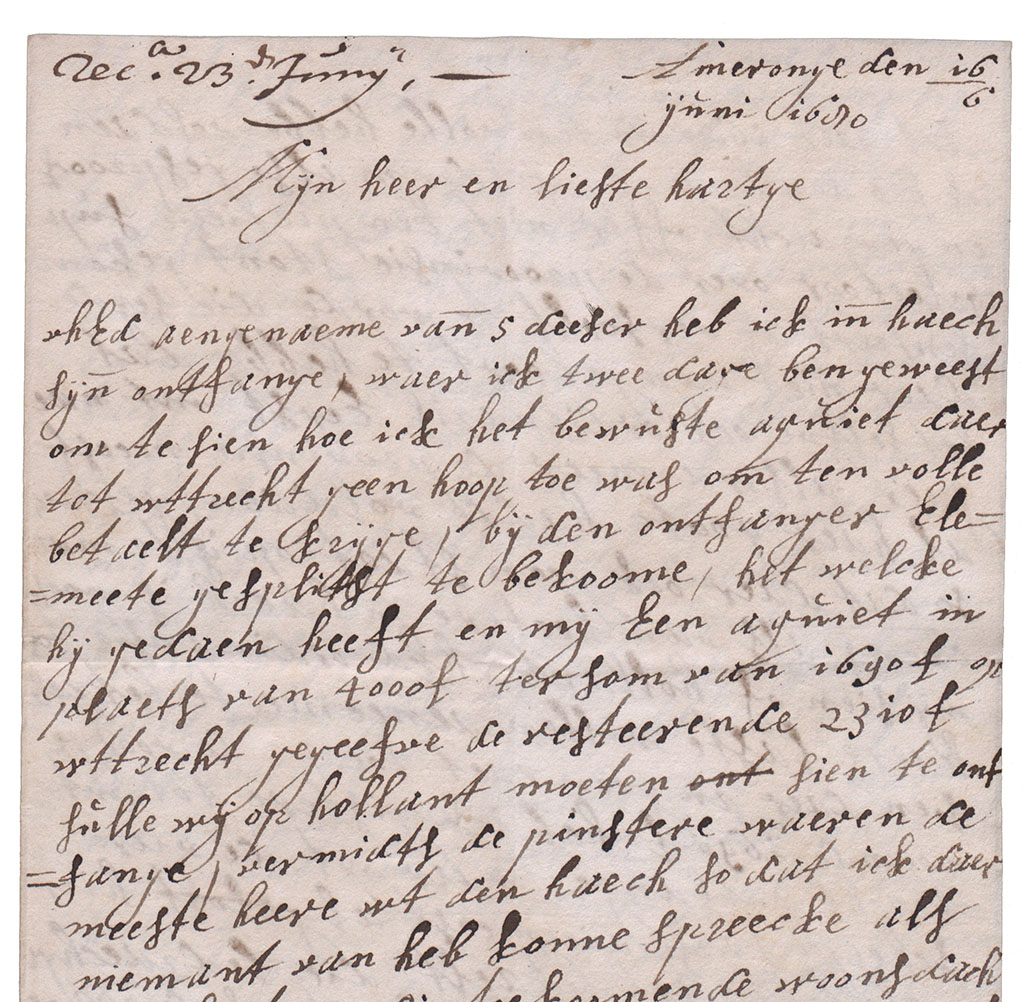 Rec.a 23.th Juny,
Ameronge den 16/6
yuni 1680
Mijn heer en lieste hartye
uhEd aengenaeme van 5 deeser heb ick in haech
sijn ontfange, waer ick twee dage ben geweest
om te sien hoe ick het bewuste aquiet daer
tot uttrecht geen hoop toe was om ten volle
betaelt te krijge, bij den ontfanger Ele=
=meete gesplitst te bekoome, het welcke
hij gedaen heeft en mij Een aquiet in
plaets van 4000f ter som van 1690f op
uttrecht gegeefve de resteerende 2310f
sulle wij op hollant moeten ont sien te ont
=fange, vermidts de pinstere waeren de
meeste heere ut den haech so dat ick daer
niemant van heb konne spreecke als
komende woonsdach